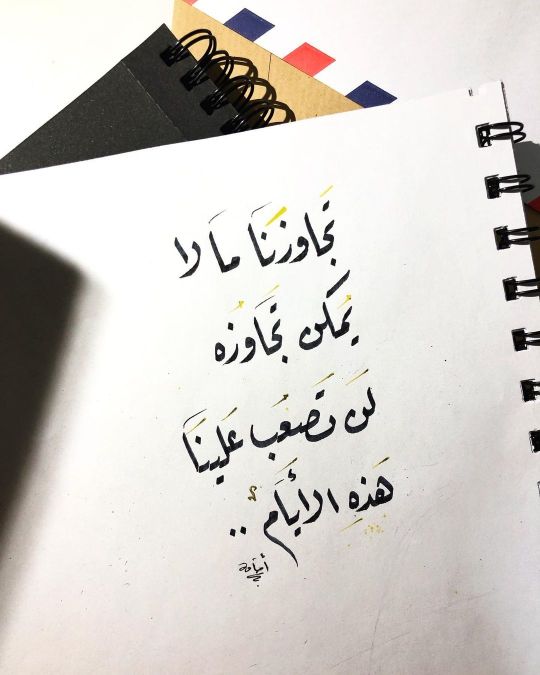 تَجَاوزنَا مَا لا
يُمكن تَجَاوُزه
لَن تَصعُب عَلينَا
هَذهِ الأيَام ..